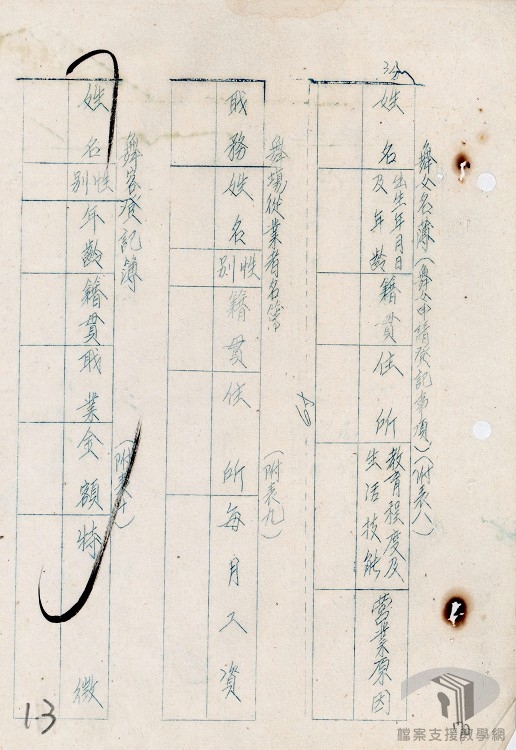 舞女名簿(舞女申請登記事項)(附表八)
姓名
出生年月日及年齡
籍貫
住所
教育程度及生活技能
營業原因
舞場從業者名簿
(附表九)
職務
姓名
性別
籍貫
住所
每月工資
舞客登記簿
(附表十)
姓名
性別
年齡
籍貫
職業
金額
特徵
13
檔案支援教學網